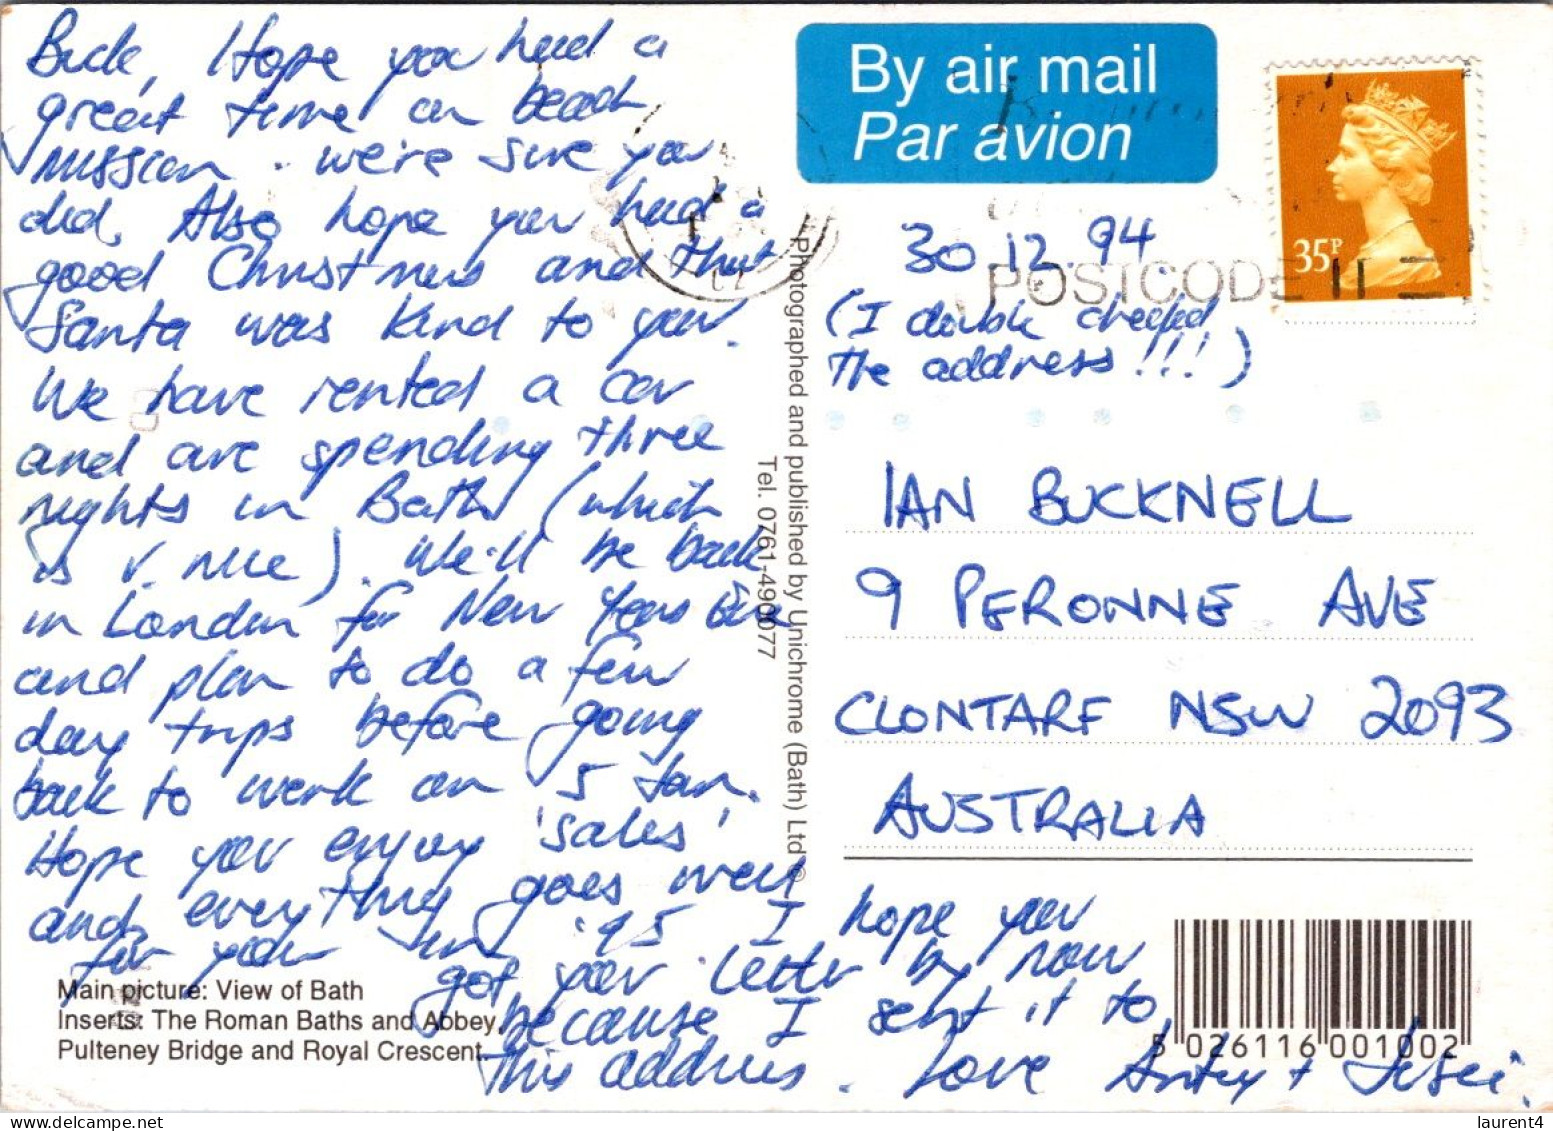 Buck, Hope you had a
great time on beach
mission. we're sure you
did. Also hope you had a
good Christmas and that
Santa was kind to you.
We have rented a car
and are spending three
nights in Bath (which
is v. nice). We'll be back
in London for New Years Eve
and plan to do a few
day trips before going
back to work on 5 Jan.
Hope you enjoy 'sales'
and everything goes well
for you in '95 I hope you
got your letter by now
because I sent it to
this address. Love
Main picture: View of Bath
Inserts: The Roman Baths and Abbey,
Pulteney Bridge and Royal Crescent.
Photographed and published by Unichrome (Bath) Ltd ©
Tel. 0761-490077
By air mail
Par avion
35P
POSTCODE
30.12.94
(I double checked
the address!!!)
IAN BUCKNELL
9 PERONNE AVE
CLONTARF NSW 2093
AUSTRALIA
5 026116 001002
laurent4